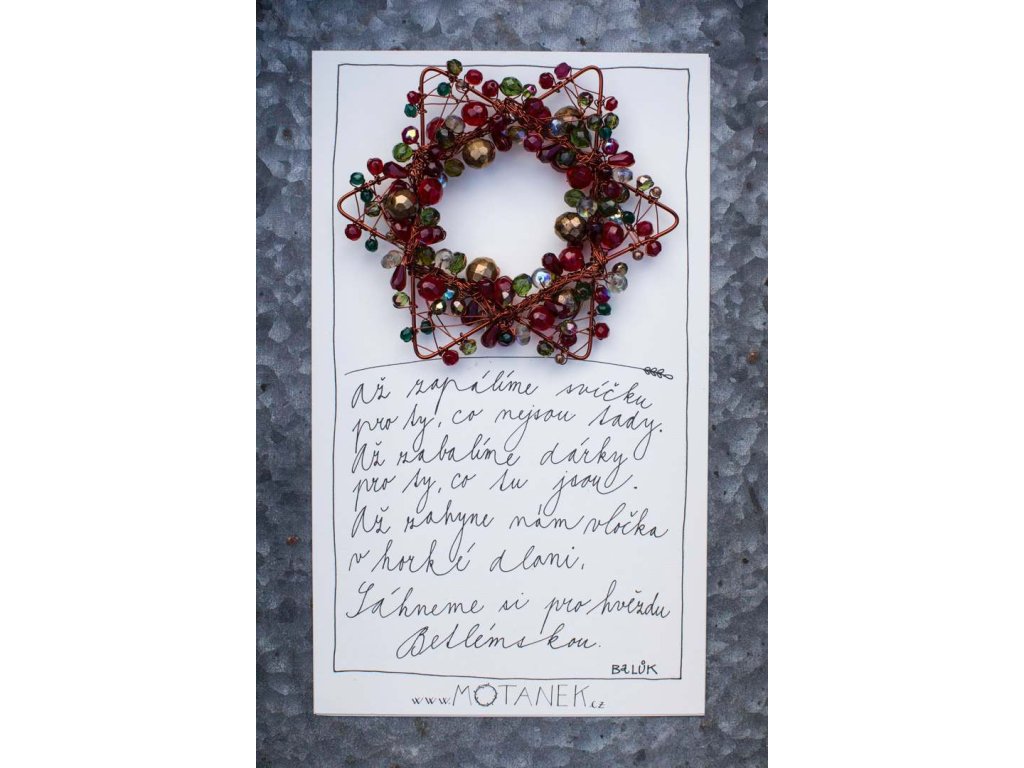 Až zapálíme svíčku
pro ty, co nejsou tady.
Až zabalíme dárky
pro ty, co tu jsou.
Až zahyne nám vločka
v horké dlani,
Sáhneme si pro hvězdu
Betlémskou.
BaLŮK
www.MOTANEK.cz